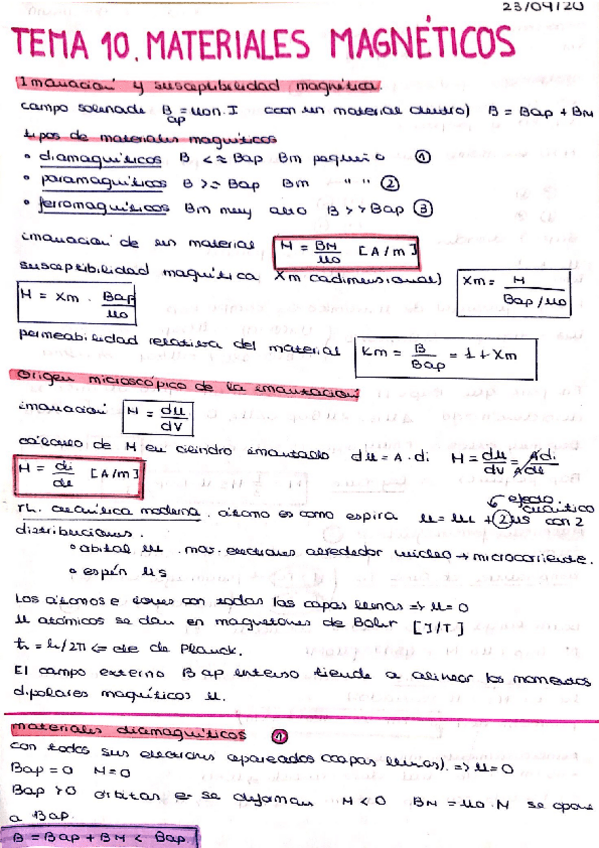 23/04/20
TEMA 10. MATERIALES MAGNÉTICOS
Imanación y susceptibilidad magnética.
campo solenoide Bap = μ0n.I (con un material dentro) B = Bap + BM
tipos de materiales magnéticos
• diamagnéticos B <≈ Bap Bm pequeño ①
• paramagnéticos B >≈ Bap Bm " " ②
• ferromagnéticos Bm muy alto B >> Bap ③
imanación de un material M = BM/μ0 [A/m]
susceptibilidad magnética Xm (adimensional) Xm = M/(Bap/μ0)
M = Xm . Bap/μ0
permeabilidad relativa del material Km = B/Bap = 1 + Xm
Origen microscópico de la imantación
imanación M = dμ/dV
cálculo de M en cilindro imantado dμ = A . di M = dμ/dV = Adi/Adl
M = di/dl [A/m]
efecto cuántico
th. cuántica moderna. átomo es como espira μ = μL + 2μS con 2
distribuciones.
• orbital μL . mov. electrones alrededor núcleo → microcorriente.
• espín μS
Los átomos e iones con todas las capas llenas ⇒ μ = 0
μ atómicos se dan en magnetones de Bohr [J/T]
ħ = h/2π ⇐ cte de Planck.
El campo externo Bap intenso tiende a alinear los momentos
dipolares magnéticos μ.
materiales diamagnéticos ①
con todos sus electrones apareados (capas llenas). ⇒ μ = 0
Bap = 0 M = 0
Bap > 0 órbitas e- se deforman M < 0 BM = μ0 . M se opone
a Bap.
B = Bap + BM < Bap